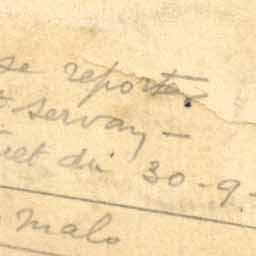 se reporter
t Servan -
et du 30-9-
Malo